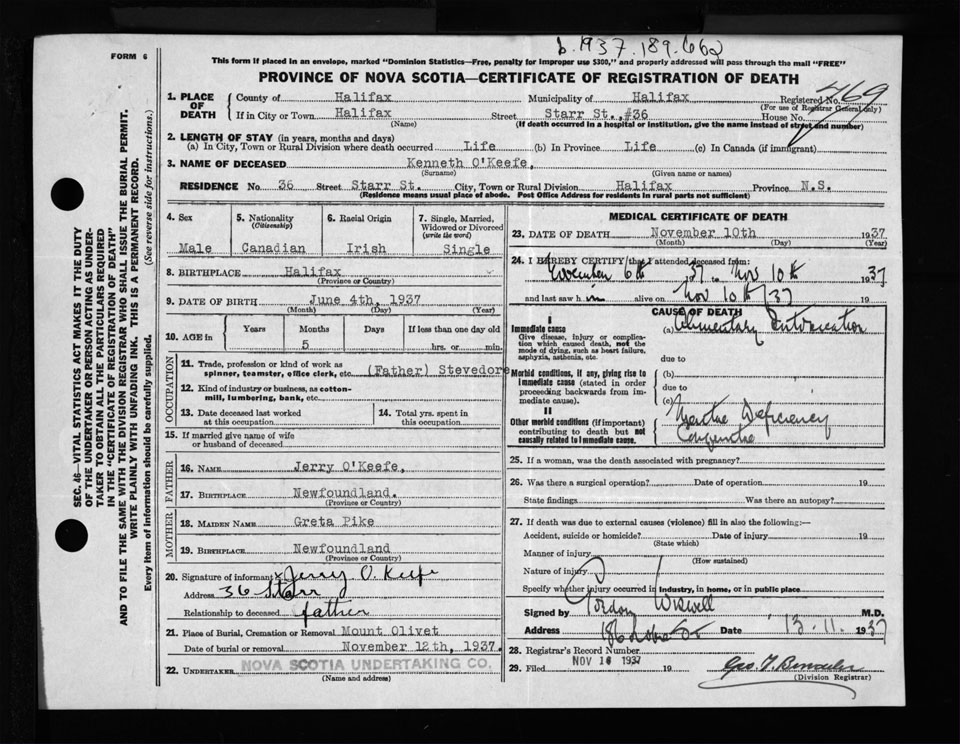 b.1937.189.662
FORM 6
This form if placed in an envelope, marked "Dominion Statistics—Free, penalty for improper use $300," and properly addressed will pass through the mail "FREE"
PROVINCE OF NOVA SCOTIA—CERTIFICATE OF REGISTRATION OF DEATH
SEC. 46—VITAL STATISTICS ACT MAKES IT THE DUTY
OF THE UNDERTAKER OR PERSON ACTING AS UNDER-
TAKER TO OBTAIN ALL THE PARTICULARS REQUIRED
IN THE "CERTIFICATE OF REGISTRATION OF DEATH"
AND TO FILE THE SAME WITH THE DIVISION REGISTRAR WHO SHALL ISSUE THE BURIAL PERMIT.
WRITE PLAINLY WITH UNFADING INK. THIS IS A PERMANENT RECORD.
Every item of information should be carefully supplied. (See reverse side for instructions.)
1. PLACE OF DEATH
County of Halifax Municipality of Halifax Registered No. 469
(For use of Registrar General only)
If in City or Town Halifax Street Starr St., #36 House No.
(Name) (If death occurred in a hospital or institution, give the name instead of street and number)
2. LENGTH OF STAY (in years, months and days)
(a) In City, Town or Rural Division where death occurred Life (b) In Province Life (c) In Canada (if immigrant)
3. NAME OF DECEASED Kenneth O'Keefe,
(Surname) (Given name or names)
RESIDENCE No. 36 Street Starr St. City, Town or Rural Division Halifax Province N.S.
(Residence means usual place of abode. Post Office Address for residents in rural parts not sufficient)
4. Sex
Male
5. Nationality
(Citizenship)
Canadian
6. Racial Origin
Irish
7. Single, Married, Widowed or Divorced
(write the word)
Single
8. BIRTHPLACE Halifax
(Province or Country)
9. DATE OF BIRTH June 4th, 1937
(Month) (Day) (Year)
10. AGE in Years Months Days If less than one day old
5 hrs. or min.
OCCUPATION
11. Trade, profession or kind of work as (Father) Stevedore
spinner, teamster, office clerk, etc.
12. Kind of industry or business, as cotton-
mill, lumbering, bank, etc.
13. Date deceased last worked
at this occupation
14. Total yrs. spent in
this occupation
15. If married give name of wife
or husband of deceased
FATHER
16. NAME Jerry O'Keefe,
17. BIRTHPLACE Newfoundland.
(Province or Country)
MOTHER
18. MAIDEN NAME Greta Pike
19. BIRTHPLACE Newfoundland
(Province or Country)
20. Signature of informant x Jerry O. Keefe
Address 36 Starr
Relationship to deceased father
21. Place of Burial, Cremation or Removal Mount Olivet
Date of burial or removal November 12th, 1937.
22. UNDERTAKER NOVA SCOTIA UNDERTAKING CO.
(Name and address)
MEDICAL CERTIFICATE OF DEATH
23. DATE OF DEATH November 10th 1937
(Month) (Day) (Year)
24. I HEREBY CERTIFY that I attended deceased from:
November 6th 37 to Nov 10th 1937
and last saw him alive on Nov 10th/37 19
CAUSE OF DEATH
I
Immediate cause
Give disease, injury or complica-
tion which caused death, not the
mode of dying, such as heart failure,
asphyxia, asthenia, etc.
(a) Alimentary Intoxication
due to
Morbid conditions, if any, giving rise to
immediate cause (stated in order
proceeding backwards from im-
mediate cause).
(b)
due to
(c)
II
Other morbid conditions (if important)
contributing to death but not
causally related to immediate cause.
Deficiency
25. If a woman, was the death associated with pregnancy?
26. Was there a surgical operation? Date of operation 19
State findings Was there an autopsy?
27. If death was due to external causes (violence) fill in also the following:—
Accident, suicide or homicide? Date of injury 19
(State which)
Manner of injury
(How sustained)
Nature of injury
Specify whether injury occurred in industry, in home, or in public place
Signed by Gordon Wiswell M.D.
Address 186 Date 13.11. 1937
28. Registrar's Record Number
29. Filed NOV 16 1937 19
(Division Registrar)